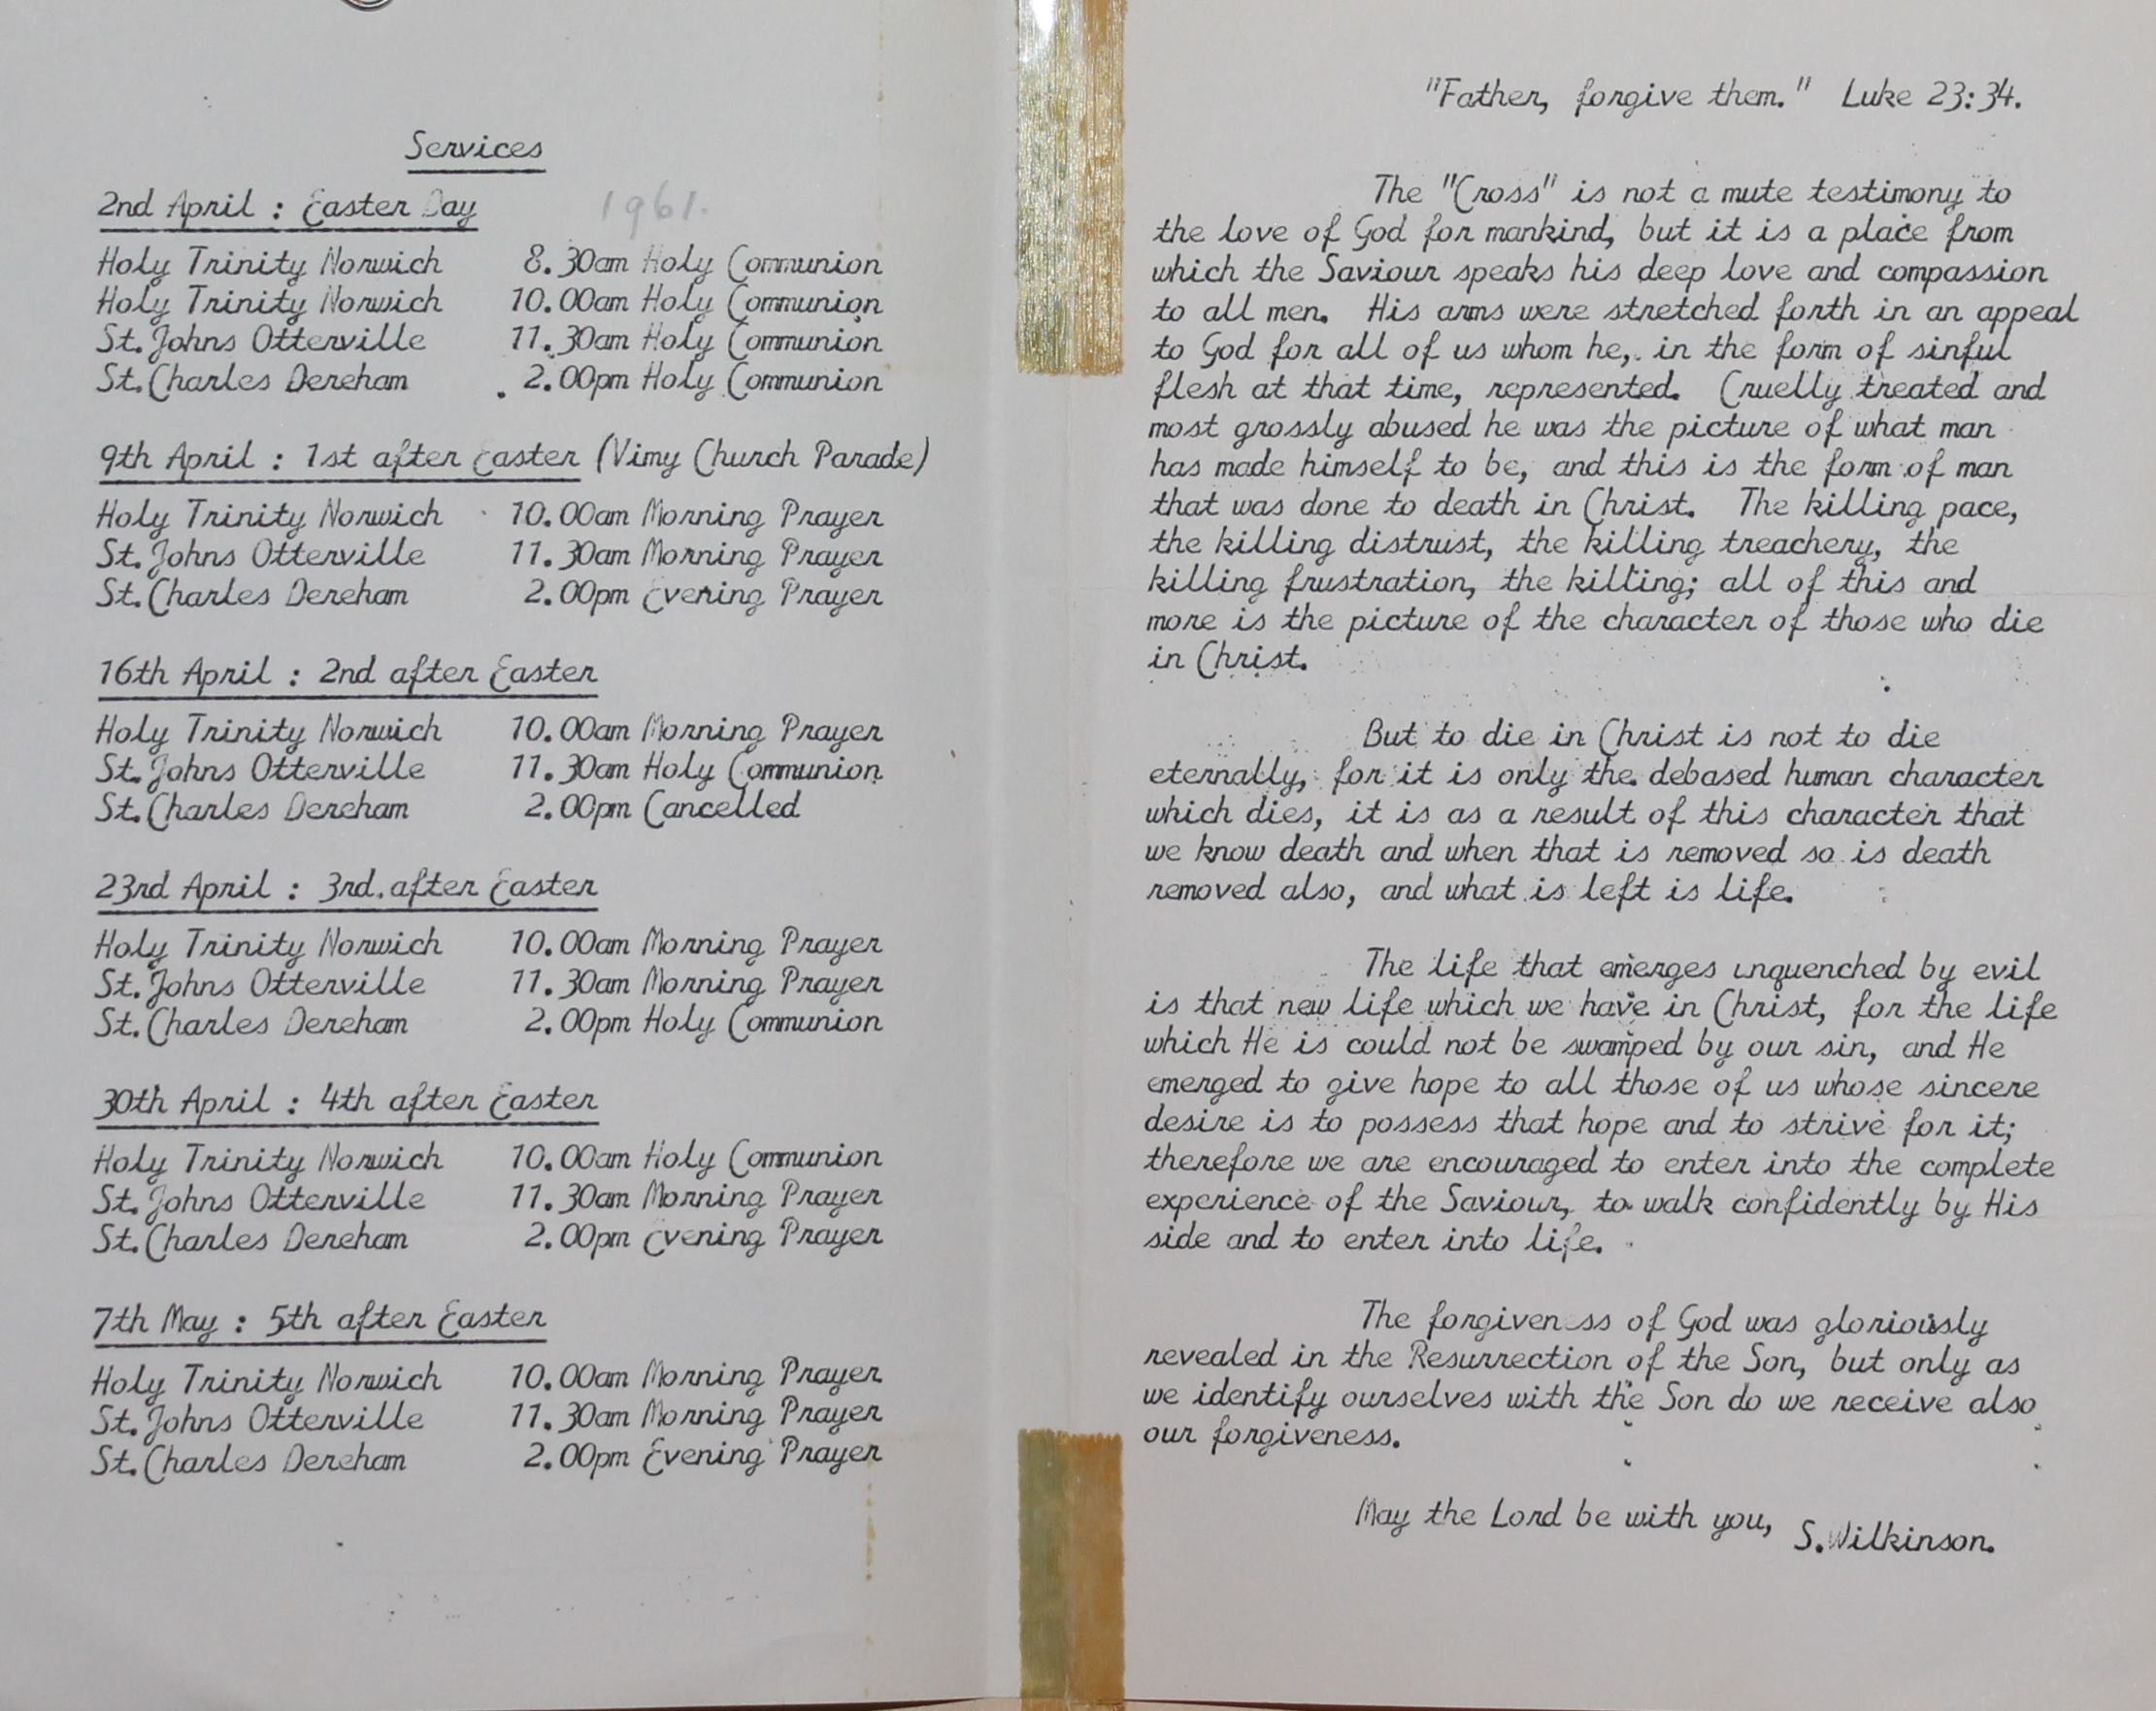 Services
2nd April : Easter Day 1961.
Holy Trinity Norwich 8.30am Holy Communion
Holy Trinity Norwich 10.00am Holy Communion
St.Johns Otterville 11.30am Holy Communion
St.Charles Dereham 2.00pm Holy Communion
9th April : 1st after Easter (Vimy Church Parade)
Holy Trinity Norwich 10.00am Morning Prayer
St.Johns Otterville 11.30am Morning Prayer
St.Charles Dereham 2.00pm Evening Prayer
16th April : 2nd after Easter
Holy Trinity Norwich 10.00am Morning Prayer
St.Johns Otterville 11.30am Holy Communion
St.Charles Dereham 2.00pm Cancelled
23rd April : 3rd.after Easter
Holy Trinity Norwich 10.00am Morning Prayer
St.Johns Otterville 11.30am Morning Prayer
St.Charles Dereham 2.00pm Holy Communion
30th April : 4th after Easter
Holy Trinity Norwich 10.00am Holy Communion
St.Johns Otterville 11.30am Morning Prayer
St.Charles Dereham 2.00pm Evening Prayer
7th May : 5th after Easter
Holy Trinity Norwich 10.00am Morning Prayer
St.Johns Otterville 11.30am Morning Prayer
St.Charles Dereham 2.00pm Evening Prayer
"Father, forgive them." Luke 23:34.
The "Cross" is not a mute testimony to
the love of God for mankind, but it is a place from
which the Saviour speaks his deep love and compassion
to all men. His arms were stretched forth in an appeal
to God for all of us whom he, in the form of sinful
flesh at that time, represented. Cruelly treated and
most grossly abused he was the picture of what man
has made himself to be, and this is the form of man
that was done to death in Christ. The killing pace,
the killing distrust, the killing treachery, the
killing frustration, the killing; all of this and
more is the picture of the character of those who die
in Christ.
But to die in Christ is not to die
eternally, for it is only the debased human character
which dies, it is as a result of this character that
we know death and when that is removed so is death
removed also, and what is left is life.
The life that emerges unquenched by evil
is that new life which we have in Christ, for the life
which He is could not be swamped by our sin, and He
emerged to give hope to all those of us whose sincere
desire is to possess that hope and to strive for it;
therefore we are encouraged to enter into the complete
experience of the Saviour, to walk confidently by His
side and to enter into life.
The forgiveness of God was gloriously
revealed in the Resurrection of the Son, but only as
we identify ourselves with the Son do we receive also
our forgiveness.
May the Lord be with you, S.Wilkinson.